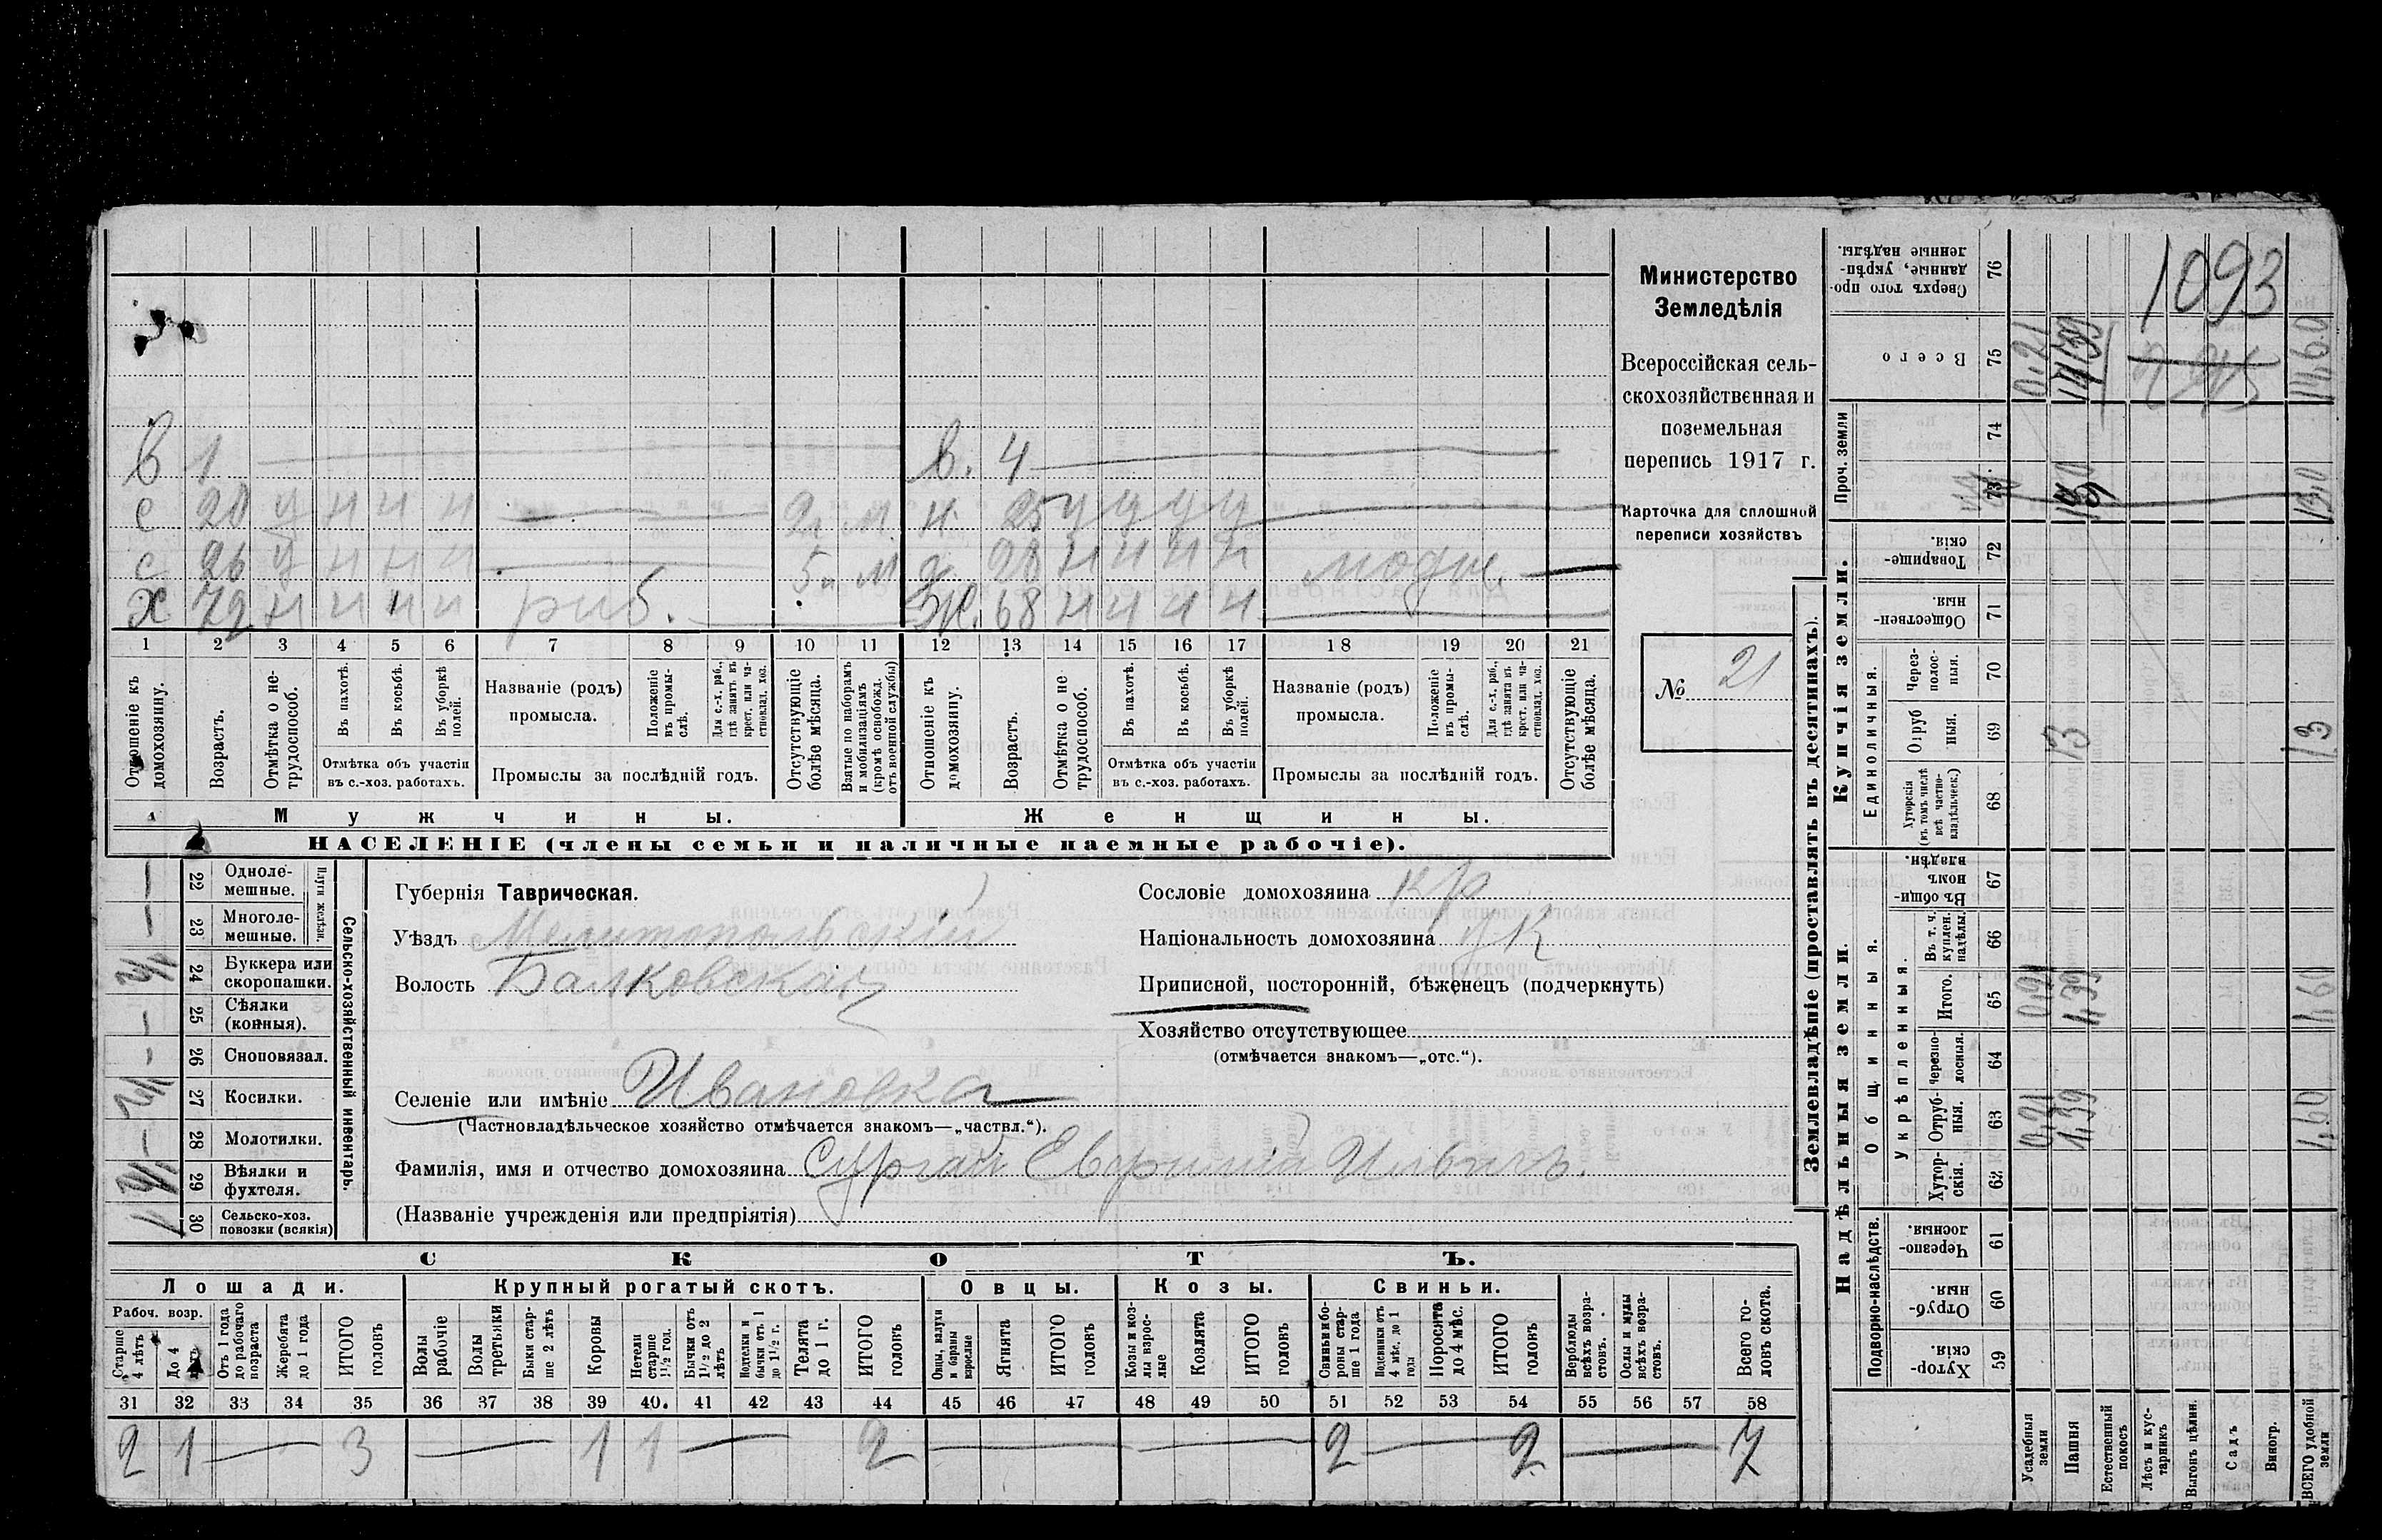 Министерство
Земледѣлія
Всероссійская сель-
скохозяйственная и
поземельная
перепись 1917 г.
Карточка для сплошной
переписи хозяйствъ
№ 21
в 1
с 20 у н н н
с 26 у н н н
х 72 н н н н
в. 4
н. 25 у у у у
28 н н н н
ж. 68 н н н н
1 2 3 4 5 6 7 8 9 10 11 12 13 14 15 16 17 18 19 20 21
Отношеніе къ домохозяину.
Возрастъ.
Отмѣтка о не-трудоспособ.
Въ пахотѣ.
Въ косьбѣ.
Въ уборкѣ полей.
Отмѣтка объ участіи въ с.-хоз. работахъ.
Названіе (родъ) промысла.
Положеніе въ промы-слѣ.
Для с.-х. раб., гдѣ занятъ въ крест. или ча-стновлад. хоз.
Промыслы за послѣдній годъ.
Отсутствующіе болѣе мѣсяца.
Взятые по наборамъ и мобилизаціямъ (кромѣ освобожд. отъ военной службы)
Отношеніе къ домохозяину.
Возрастъ.
Отмѣтка о не трудоспособ.
Въ пахотѣ.
Въ косьбѣ.
Въ уборкѣ полей.
Отмѣтка объ участіи въ с.-хоз. работахъ.
Названіе (родъ) промысла.
Положеніе въ промы-слѣ.
Для с.-х. раб., гдѣ занята въ крест. или ча-стновлад. хоз.
Промыслы за послѣдній годъ.
Отсутствующіе болѣе мѣсяца.
Мужчины.
Женщины.
НАСЕЛЕНІЕ (члены семьи и наличные наемные рабочіе).
22 Одноле-мешные.
23 Многоле-мешные.
Плуги желѣзн.
24 Буккера или скоропашки.
25 Сѣялки (конныя).
26 Сноповязал.
27 Косилки.
28 Молотилки.
29 Вѣялки и фухтеля.
30 Сельско-хоз. повозки (всякія)
Сельско-хозяйственный инвентарь.
Губернія Таврическая.
Уѣздъ Мелитопольскій
Волость Балковская
Селеніе или имѣніе Ивановка
(Частновладѣльческое хозяйство отмѣчается знакомъ—„частвл.“).
Фамилія, имя и отчество домохозяина Сургай Евфимій Ильичъ.
(Названіе учрежденія или предпріятія)
Сословіе домохозяина кр
Національность домохозяина
Приписной, посторонній, бѣженецъ (подчеркнуть)
Хозяйство отсутствующее
(отмѣчается знакомъ—„отс.“).
СКОТЪ.
Лошади.
Крупный рогатый скотъ.
Овцы.
Козы.
Свиньи.
Рабоч. возр.
Старше 4 лѣтъ
До 4 лѣтъ
Отъ 1 года до рабочаго возраста
Жеребята до 1 года
ИТОГО головъ
Волы рабочіе
Волы третьяки
Быки стар-ше 2 лѣтъ
Коровы
Нетели старше 1½ год.
Бычки отъ 1½ до 2 лѣтъ
Подтелки и бычки отъ 1 до 1½ г.
Телята до 1 г.
ИТОГО головъ
Овцы, валухи и бараны взрослые
Ягнята
ИТОГО головъ
Козы и коз-лы взрос-лые
Козлята
ИТОГО головъ
Свиньи и бо-ровы стар-ше 1 года
Подсвинки отъ 4 мѣс. до 1 года
Поросята до 4 мѣс.
ИТОГО головъ
Верблюды всѣхъ возра-стовъ.
Ослы и мулы всѣхъ возра-стовъ.
Всего го-ловъ скота.
31 32 33 34 35 36 37 38 39 40 41 42 43 44 45 46 47 48 49 50 51 52 53 54 55 56 57 58
2 1 3 1 1 2 2 2 7
Землевладѣніе (проставлять въ десятинахъ).
Купчія земли.
Надѣльныя земли.
Сверхъ того про-данные, укрѣп-ленные надѣлы. 76
1093
Всего 75 0,21 14,60
Проч. земли 74 73
Товарище-скія. 72
Обществен-ныя. 71
Единоличныя.
Через-полос-ныя. 70
Отруб ныя. 69 13 13
Хуторскія (въ томъ числѣ всѣ частно-владѣльческ.) 68
Въ общин-номъ владѣн. 67
Общинныя.
Укрѣпленныя.
Въ т. ч. куплен. надѣлы. 66
Итого. 65 0,21 1,39 1,60
Черезпо-лосныя. 64
Отруб-ныя. 63 0,21 1,39 1,60
Хутор-скія. 62
Подворно-наслѣдств.
Черезпо-лосныя. 61
Отруб-ныя. 60
Хутор-скія. 59
Усадебныя земли
Пашня
Естественный покосъ
Лѣсъ и кус-тарникъ
Выгонъ цѣлин.
Садъ
Виногр.
ВСЕГО удобной земли